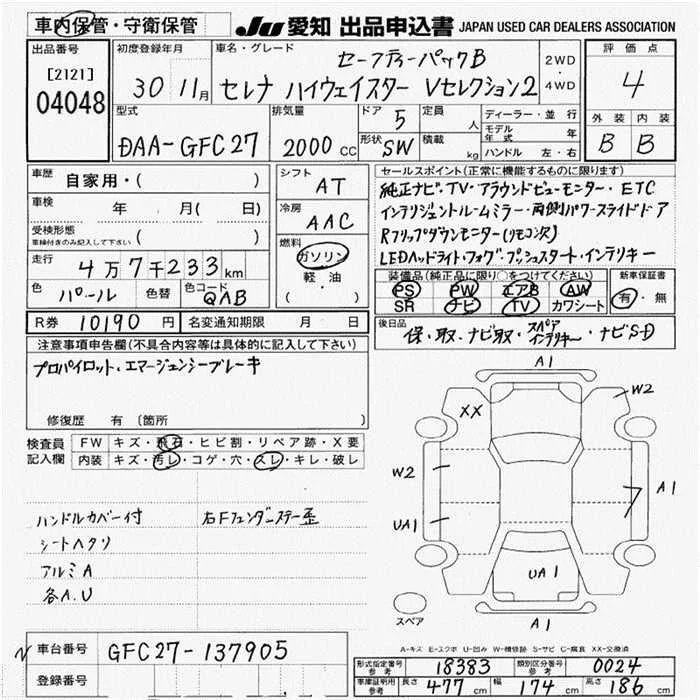 車内保管・守衛保管
JU 愛知 出品申込書 JAPAN USED CAR DEALERS ASSOCIATION
出品番号
[2121]
04048
初度登録年月
30 11月
車名・グレード
セーフティーパックB
セレナ ハイウェイスター Vセレクション2
2WD
・
4WD
評価点
4
外装 内装
B B
型式
DAA-GFC27
排気量
2000 CC
ドア 5
形状 SW
定員 人
積載 kg
ディーラー・並行
モデル年式 年
ハンドル 左・右
車歴 自家用・( )
車検 年 月( 日)
受検形態
車検付きのみ記入して下さい ( )
走行 4万7千233km
色 パール 色替 色コード QAB
R券 10190円 名変通知期限 月 日
シフト AT
冷房 AAC
燃料
ガソリン
軽・油
( )
セールスポイント(正常に機能するものに限ります)
純正ナビ・TV・アラウンドビューモニター・ETC
インテリジェントルームミラー・両側パワースライドドア
Rフリップダウンモニター(リモコン欠)
LEDヘッドライト・フォグ・プッシュスタート・インテリキー
装備品(純正品に限り○をつけてください)
PS PW エアB AW
SR ナビ TV カワシート
新車保証書
有・無
後日品
保・取・ナビ取・スペアインテリキー・ナビSD
注意事項申告欄(不具合内容等は具体的に記入して下さい)
プロパイロット・エマージェンシーブレーキ
修復歴 有 〔箇所 〕
検査員記入欄
FW キズ・飛石・ヒビ割・リペア跡・X要
内装 キズ・汚レ・コゲ・穴・スレ・キレ・破レ
ハンドルカバー付 右Fフェンダーステー歪
シートヘタリ
アルミA
各A.U
A1
XX
W2
W2
UA1
A1
UA1
A1
スペア
A-キズ E-エクボ U-凹み W-補修跡 S-サビ C-腐食 XX-交換済
車台番号 GFC27-137905
登録番号
形式指定番号 参考 18383
類別区分番号 参考 0024
車庫証明用 参考 長さ 477cm 幅 174cm 高さ 186cm